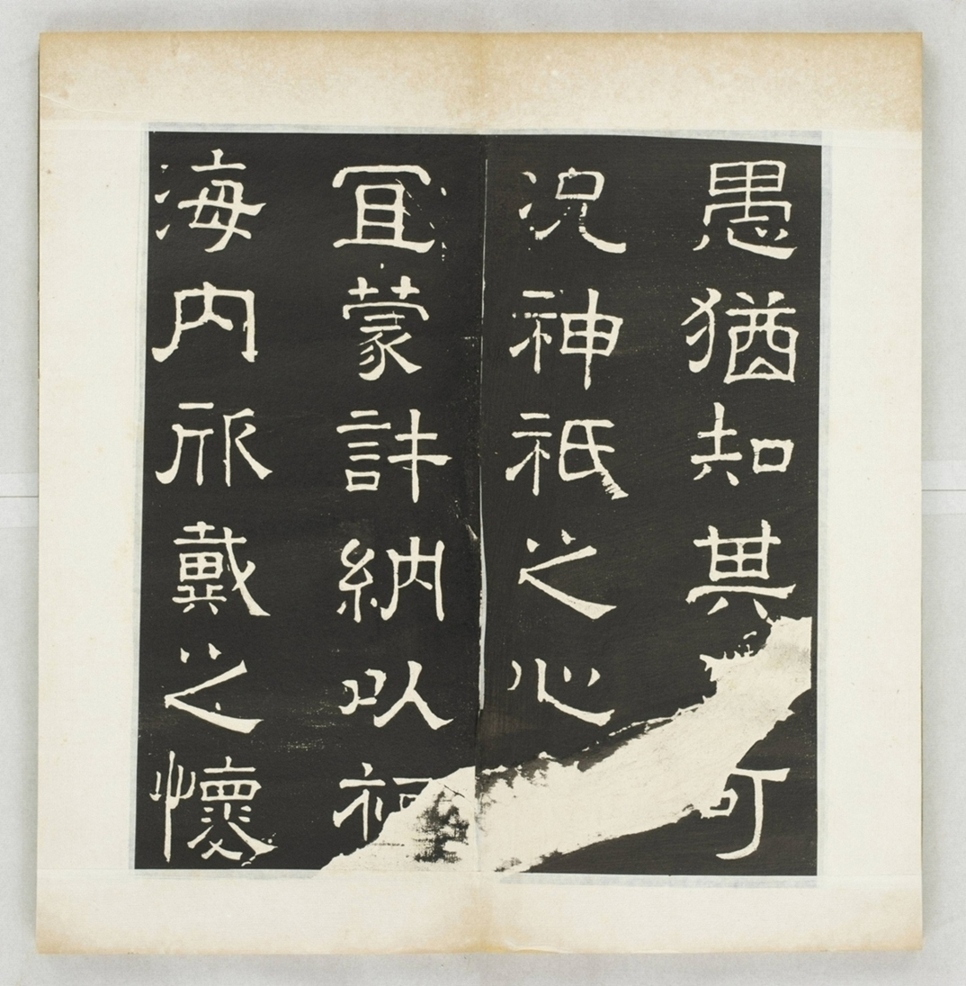 愚猶知其可
況神祇之心
冝蒙許納以
海内欣戴之懷